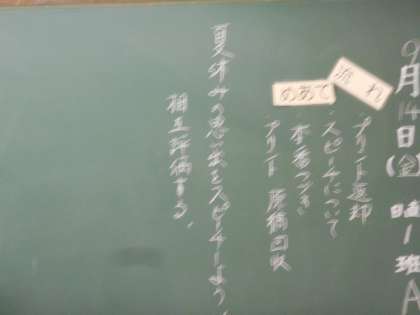 9月14日(金)
日直 1班 A
流れ
・プリント返却
・スピーチについて
・本番つづき
・プリント 原稿回収
めあて
夏休みの思い出をスピーチしよう!
相互評価する。